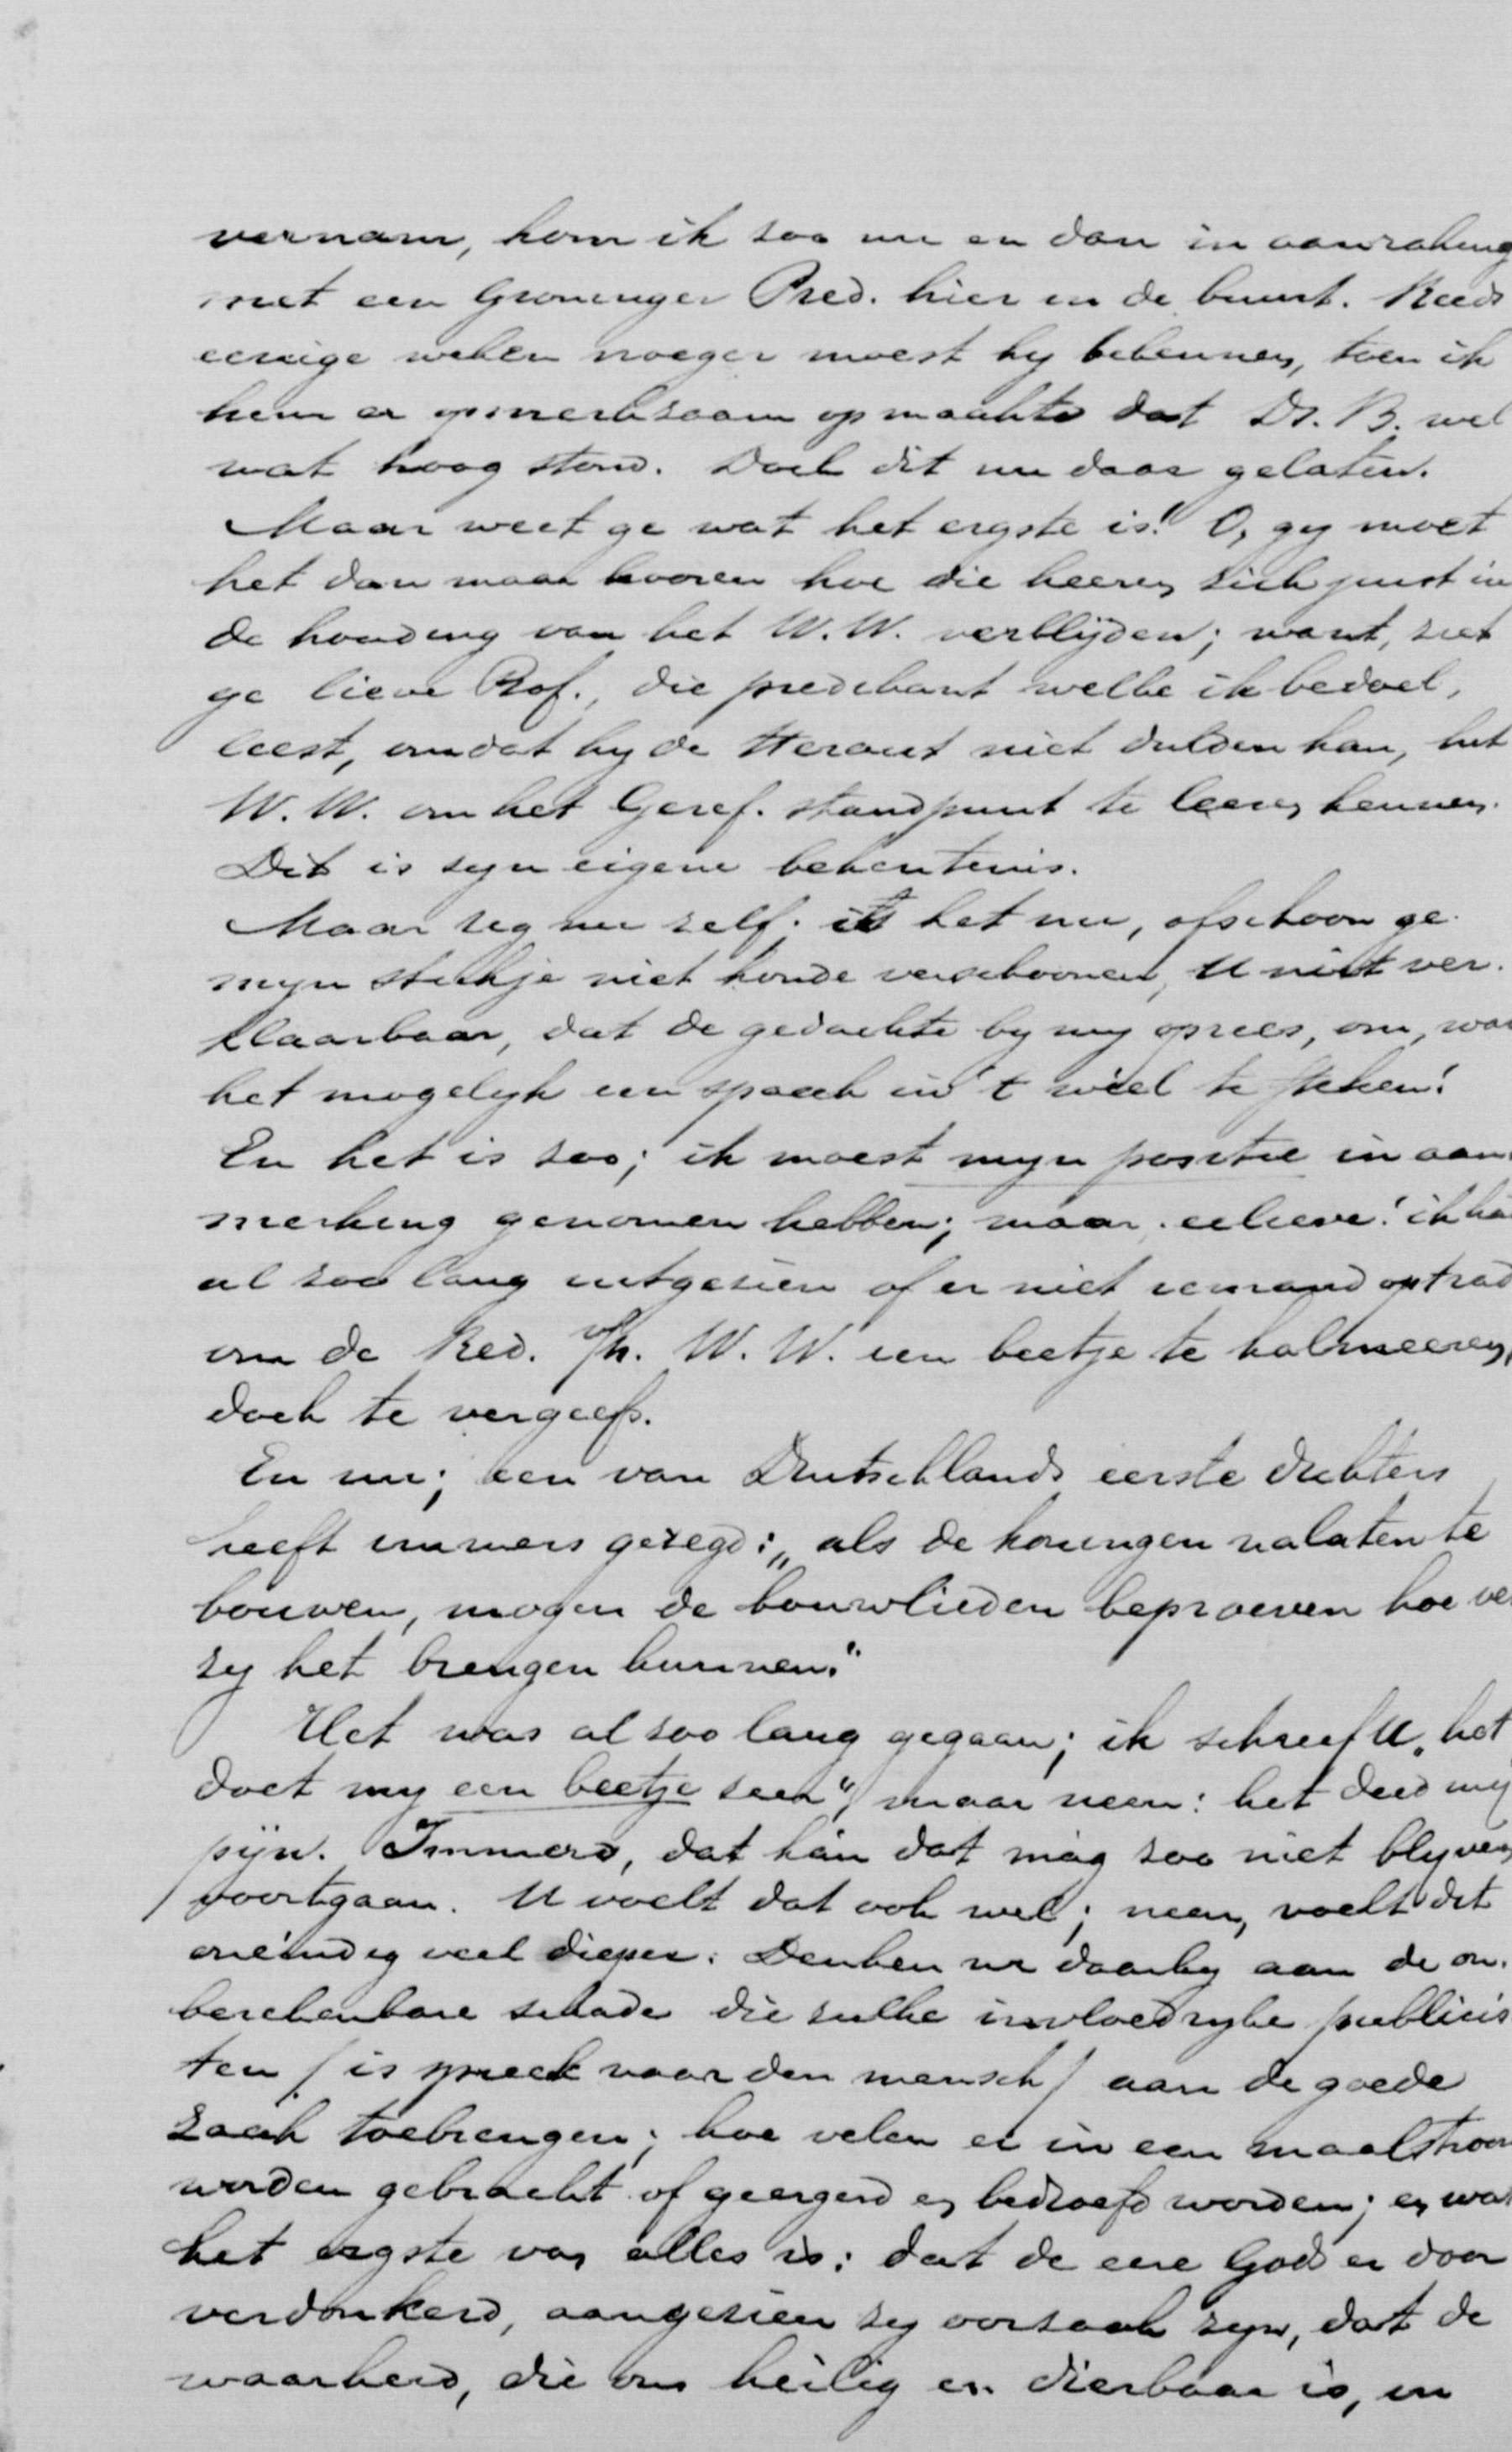 vernam, kom ik soo nu en dan in aanraking
met een Groninger Pred. hier in de buurt. Reeds
eenige weken vroeger moest hy bekennen, toen ik
hem er opmerksaam op maakte dat Ds. B. wel
wat hoog stond. Doch dit nu daar gelaten.
Maar weet ge wat het ergste is! O, gy moet
het dan maar hooren hoe die heeren sich juist in
de houding van het W. W. verblijden; want, siet
ge lieve Prof., die predikant welke ik bedoel,
leest, omdat hy de Heraut niet dulden kan, het
W. W. om het Geref. standpunt te leeren kennen.
Dit is syn eigene bekentenis.
Maar seg nu self; is het nu, ofschoon ge
myn stukje niet konde verschoonen, U niet ver-
klaarbaar, dat de gedachte by my oprees, om, waar
het mogelyk een spaak in 't wiel te steken!
En het is soo; ik moest myn positie in aan-
merking genomen hebben; maar, eilieve! ik ha
al soo lang uitgesien of er niet iemand optrad
om de Red. v/h. W. W. een beetje te kalmeeren,
doch te vergeefs.
En nu; een van Deutschlands eerste dichters
heeft immers gezegd: „als de koningen nalaten te
bouwen, mogen de bouwlieden beproeven hoe ve
sy het brengen kunnen."
Het was al soo lang gegaan; ik schreef U „het
doet my een beetje seer", maar neen: het deed my
pijn. Immers, dat kán dat mág soo niet blyven
voortgaan. U voelt dat ook wel; neen, voelt dit
oneindig veel dieper. Denken we daarby aan de on-
berekenbare schade die sulke invloedryke publicis
ten / is spreek naar den mensch / aan de goede
saak toebrengen; hoe velen er in een maalstroom
worden gebracht of geergerd en bedroefd worden; en wat
het ergste van alles is: dat de eere Gods er door
verdonkerd, aangesien sy oorsaak syn, dat de
waarheid, die ons heilig en dierbaar is, in